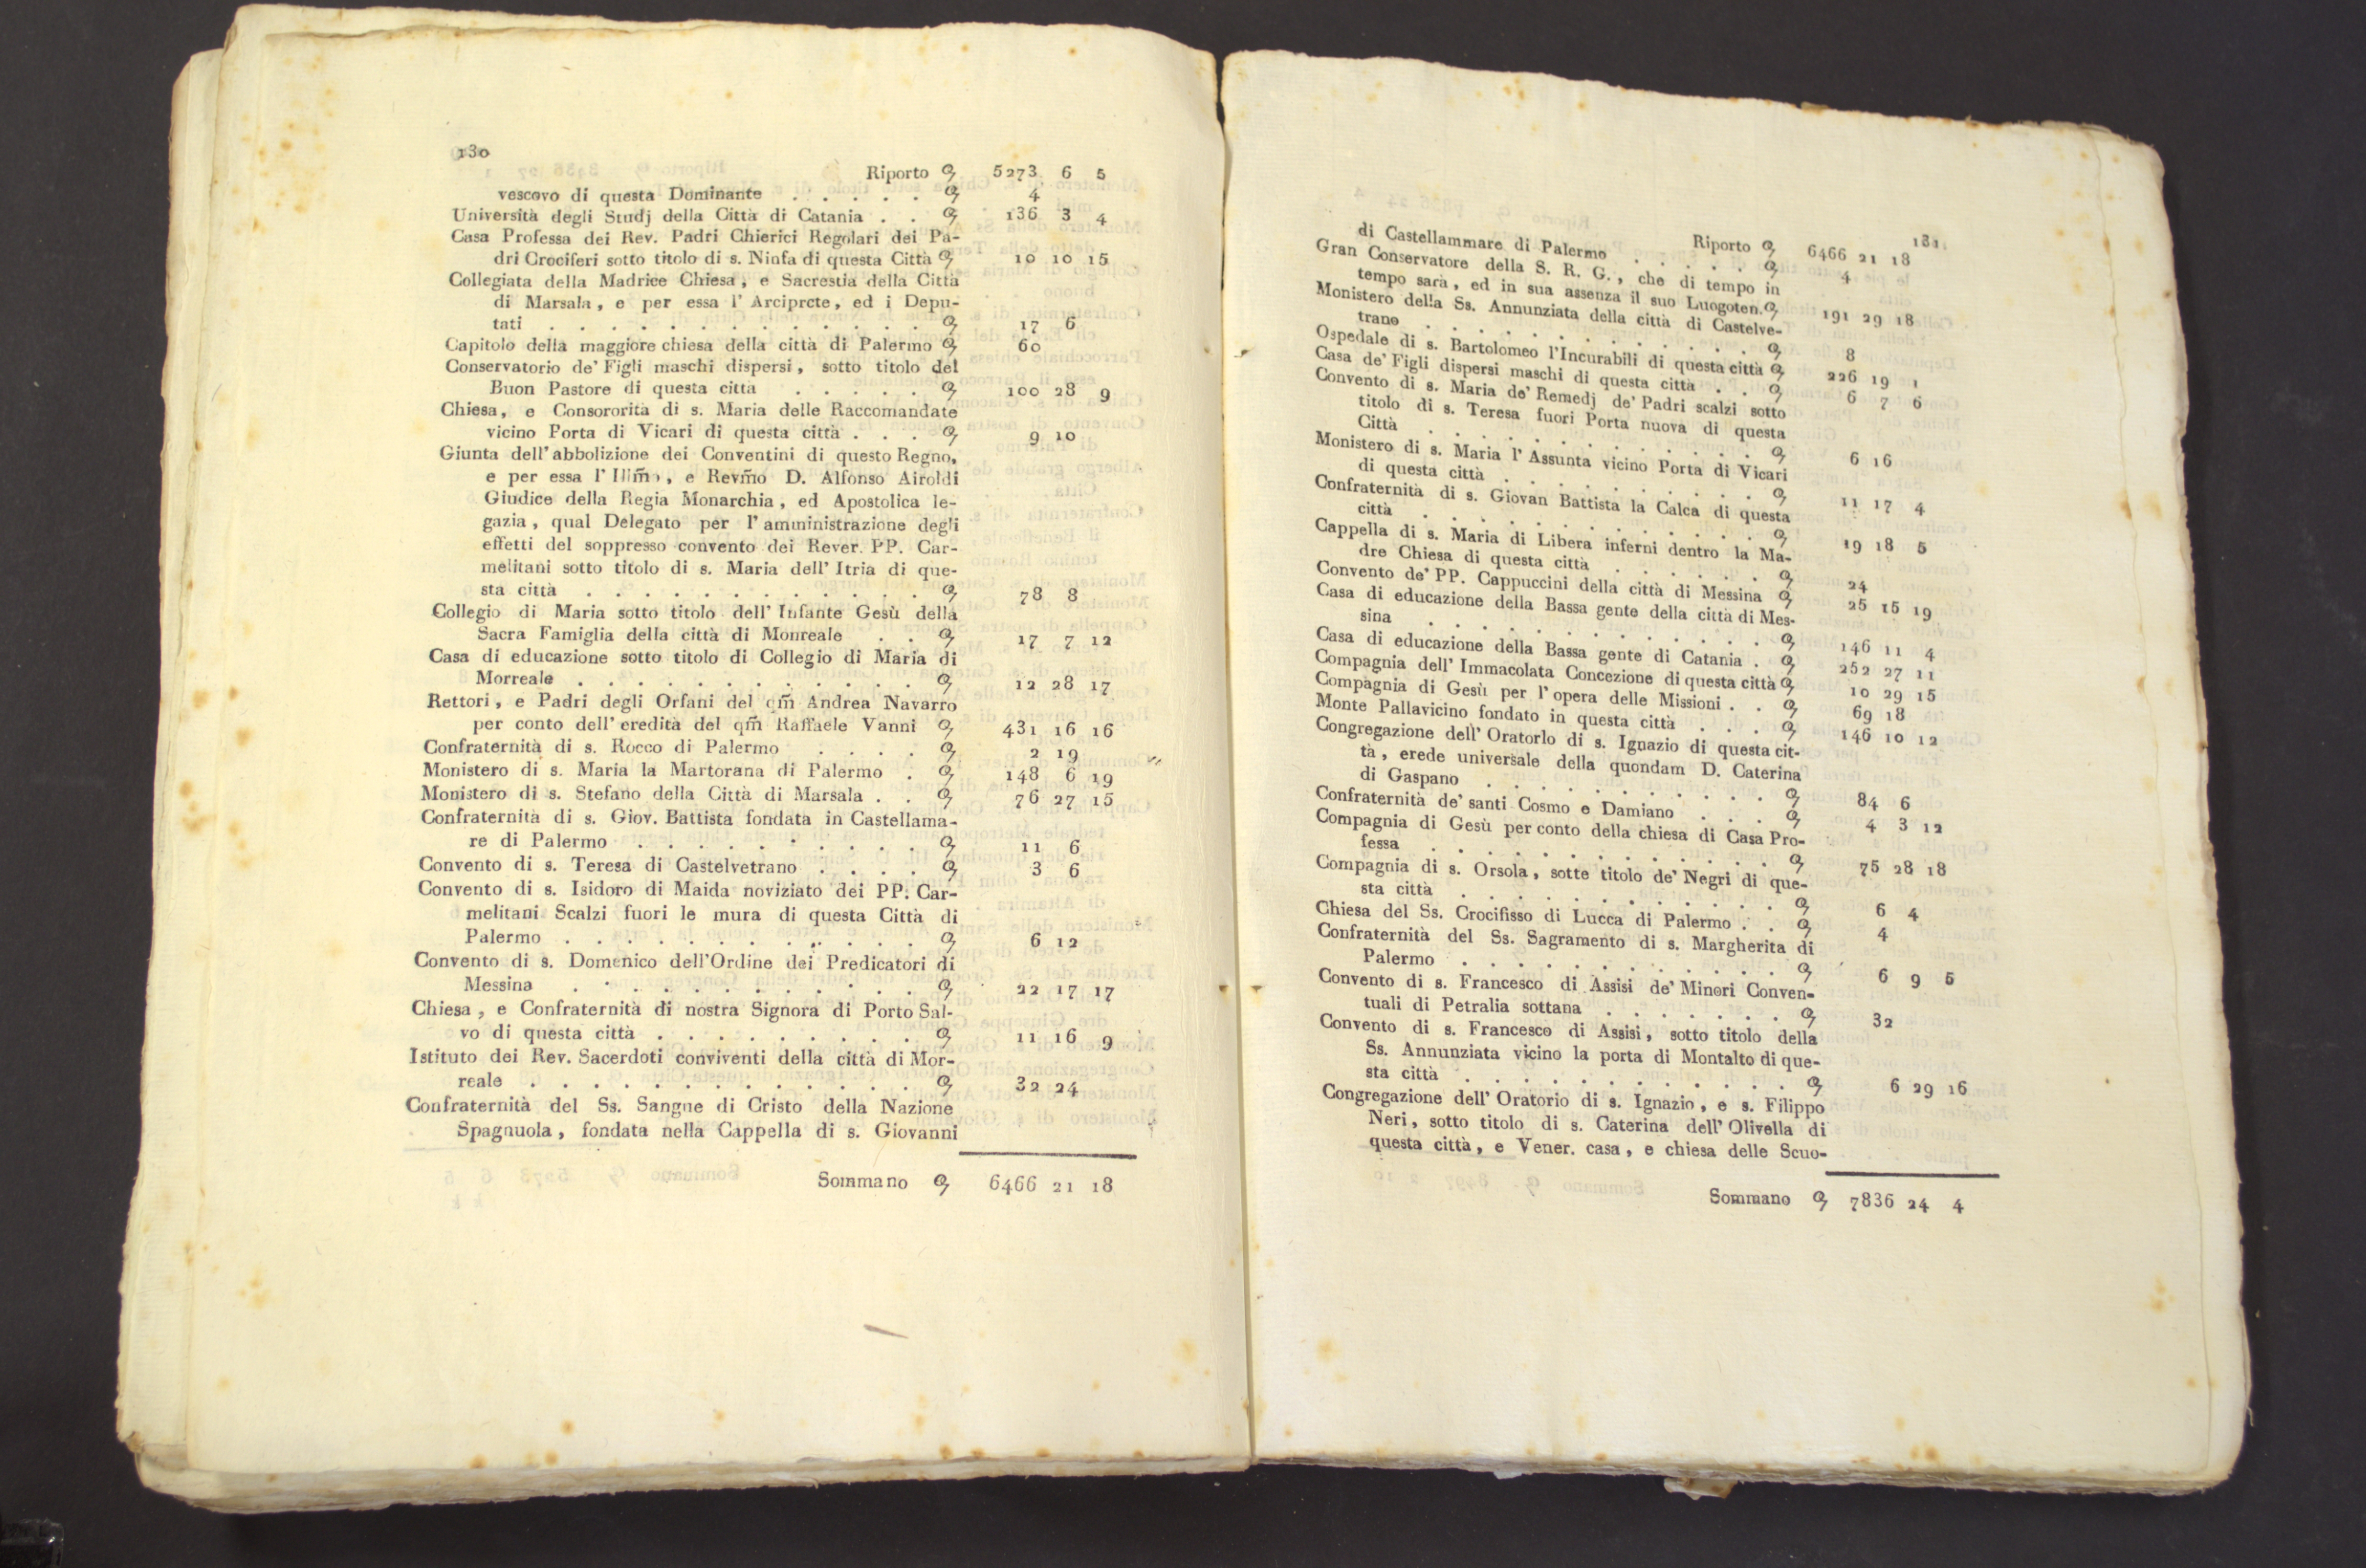 130
Riporto 5273 6 5
vescovo di questa Dominante . . . . . 4
Università degli Studj della Città di Catania . . 136 3 4
Casa Professa dei Rev. Padri Chierici Regolari dei Pa-
dri Crociferi sotto titolo di s. Ninfa di questa Città 10 10 15
Collegiata della Madrice Chiesa, e Sacrestia della Città
di Marsala, e per essa l' Arciprete, ed i Depu-
tati . . . . . . . . . . . . . 17 6
Capitolo della maggiore chiesa della città di Palermo 60
Conservatorio de' Figli maschi dispersi, sotto titolo del
Buon Pastore di questa città . . . . . 100 28 9
Chiesa, e Consororità di s. Maria delle Raccomandate
vicino Porta di Vicari di questa città . . . 9 10
Giunta dell' abbolizione dei Conventini di questo Regno,
e per essa l' Illm̃o, e Revm̃o D. Alfonso Airoldi
Giudice della Regia Monarchia, ed Apostolica le-
gazia, qual Delegato per l' amministrazione degli
effetti del soppresso convento dei Rever. PP. Car-
melitani sotto titolo di s. Maria dell' Itria di que-
sta città . . . . . . . . . . . . 78 8
Collegio di Maria sotto titolo dell' Infante Gesù della
Sacra Famiglia della città di Monreale . . 17 7 12
Casa di educazione sotto titolo di Collegio di Maria di
Morreale . . . . . . . . . . . . 12 28 17
Rettori, e Padri degli Orfani del qm̃ Andrea Navarro
per conto dell' eredità del qm̃ Raffaele Vanni 431 16 16
Confraternità di s. Rocco di Palermo . . . . 2 19
Monistero di s. Maria la Martorana di Palermo . 148 6 19
Monistero di s. Stefano della Città di Marsala . . 76 27 15
Confraternità di s. Giov. Battista fondata in Castellama-
re di Palermo . . . . . . . . . . 11 6
Convento di s. Teresa di Castelvetrano . . . . 3 6
Convento di s. Isidoro di Maida noviziato dei PP. Car-
melitani Scalzi fuori le mura di questa Città di
Palermo . . . . . . . . . . . . 6 12
Convento di s. Domenico dell'Ordine dei Predicatori di
Messina . . . . . . . . . . . . 22 17 17
Chiesa, e Confraternità di nostra Signora di Porto Sal-
vo di questa città . . . . . . . . . 11 16 9
Istituto dei Rev. Sacerdoti conviventi della città di Mor-
reale . . . . . . . . . . . . . 32 24
Confraternità del Ss. Sangue di Cristo della Nazione
Spagnuola, fondata nella Cappella di s. Giovanni
Sommano 6466 21 18
131
Riporto 6466 21 18
di Castellammare di Palermo . . . . . 4
Gran Conservatore della S. R. G., che di tempo in
tempo sarà, ed in sua assenza il suo Luogoten. 191 29 18
Monistero della Ss. Annunziata della città di Castelve-
trano . . . . . . . . . . . . 8
Ospedale di s. Bartolomeo l'Incurabili di questa città 226 19 1
Casa de' Figli dispersi maschi di questa città . . 6 7 6
Convento di s. Maria de' Remedj de' Padri scalzi sotto
titolo di s. Teresa fuori Porta nuova di questa
Città . . . . . . . . . . . . . 6 16
Monistero di s. Maria l' Assunta vicino Porta di Vicari
di questa città . . . . . . . . . . 11 17 4
Confraternità di s. Giovan Battista la Calca di questa
città . . . . . . . . . . . . . 19 18 5
Cappella di s. Maria di Libera inferni dentro la Ma-
dre Chiesa di questa città . . . . . . 24
Convento de' PP. Cappuccini della città di Messina 25 15 19
Casa di educazione della Bassa gente della città di Mes-
sina . . . . . . . . . . . . . 146 11 4
Casa di educazione della Bassa gente di Catania . 252 27 11
Compagnia dell' Immacolata Concezione di questa città 10 29 15
Compagnia di Gesù per l' opera delle Missioni . . 69 18
Monte Pallavicino fondato in questa città . . . 146 10 12
Congregazione dell' Oratorlo di s. Ignazio di questa cit-
tà, erede universale della quondam D. Caterina
di Gaspano . . . . . . . . . . . 84 6
Confraternità de' santi Cosmo e Damiano . . . . 4 3 12
Compagnia di Gesù per conto della chiesa di Casa Pro-
fessa . . . . . . . . . . . . . 75 28 18
Compagnia di s. Orsola, sotte titolo de' Negri di que-
sta città . . . . . . . . . . . . 6 4
Chiesa del Ss. Crocifisso di Lucca di Palermo . . 4
Confraternità del Ss. Sagramento di s. Margherita di
Palermo . . . . . . . . . . . . 6 9 5
Convento di s. Francesco di Assisi de' Minori Conven-
tuali di Petralia sottana . . . . . . . 32
Convento di s. Francesco di Assisi, sotto titolo della
Ss. Annunziata vicino la porta di Montalto di que-
sta città . . . . . . . . . . . . 6 29 16
Congregazione dell' Oratorio di s. Ignazio, e s. Filippo
Neri, sotto titolo di s. Caterina dell' Olivella di
questa città, e Vener. casa, e chiesa delle Scuo-
Sommano 7836 24 4